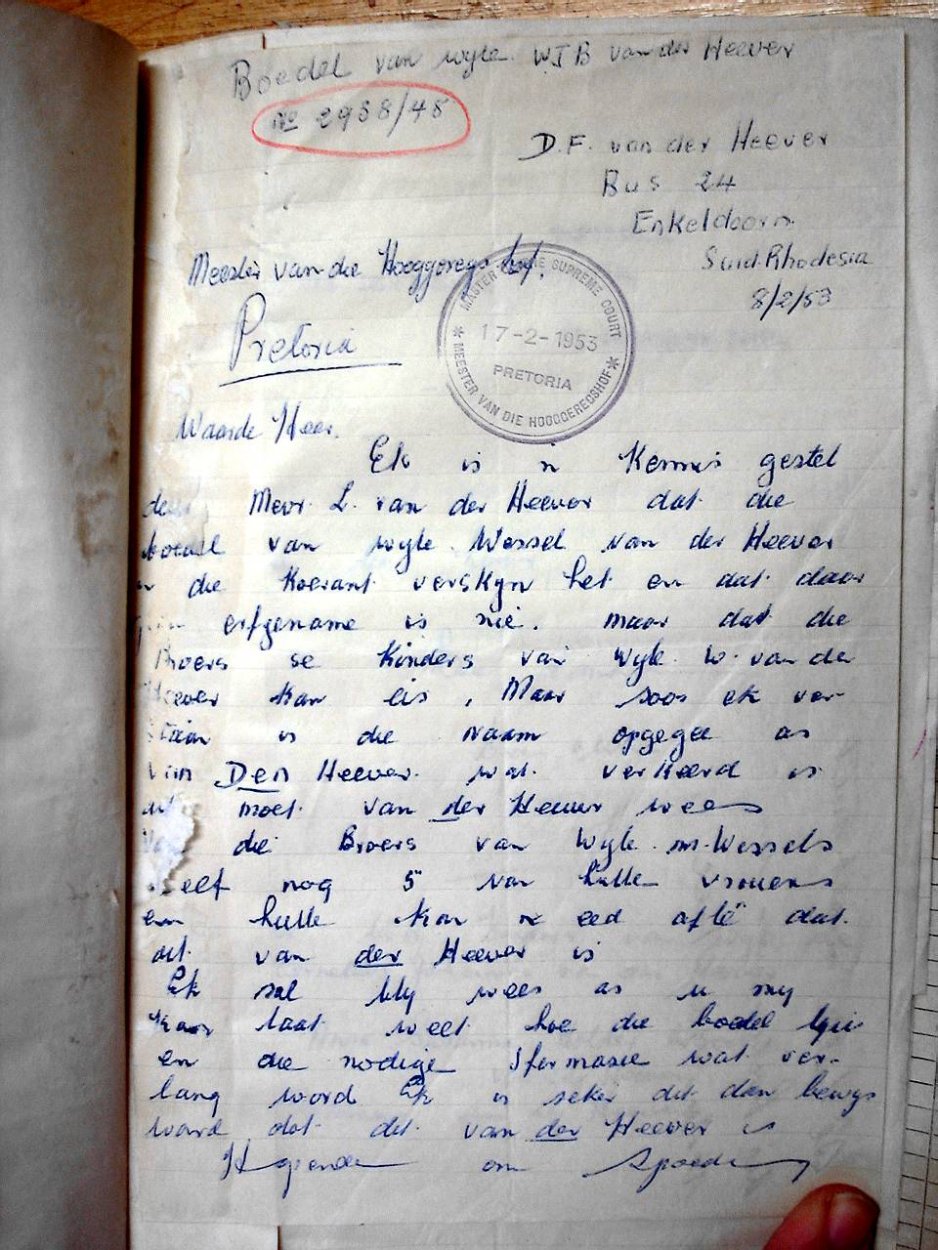 Boedel van wyle. W J B van der Heever
No 2938/48
D.F. van der Heever
Bus 24
Enkeldoorn
Suid. Rhodesia
8/2/53
Meester van die Hooggeregs hof.
MASTER OF THE SUPREME COURT
17-2-1953
PRETORIA
MEESTER VAN DIE HOOGGEREGSHOF
Pretoria
Waarde Heer.
Ek is in Kennis gestel
deur Mevr. L. van der Heever dat die
boedel van wyle. Wessel van der Heever
in die Koerant verskyn het en dat daar
erfgename is nie. maar dat die
Broers se Kinders van wyle. W. van der
Heever kan eis, Maar soos ek ver-
staan is die naam opgegee as
van Den Heever. wat verkeerd is
moet van der Heever wees
die Broers van Wyle. Wessels
leef nog 5 van hulle vrouens
en hulle kan n eed aflê dat
dit van der Heever is
Ek sal bly wees as u my
laat weet hoe die boedel
en die nodige Iformasie wat ver-
lang word Ek is seker dit dan bewys
word dat dit van der Heever is
Hopende om spoedig